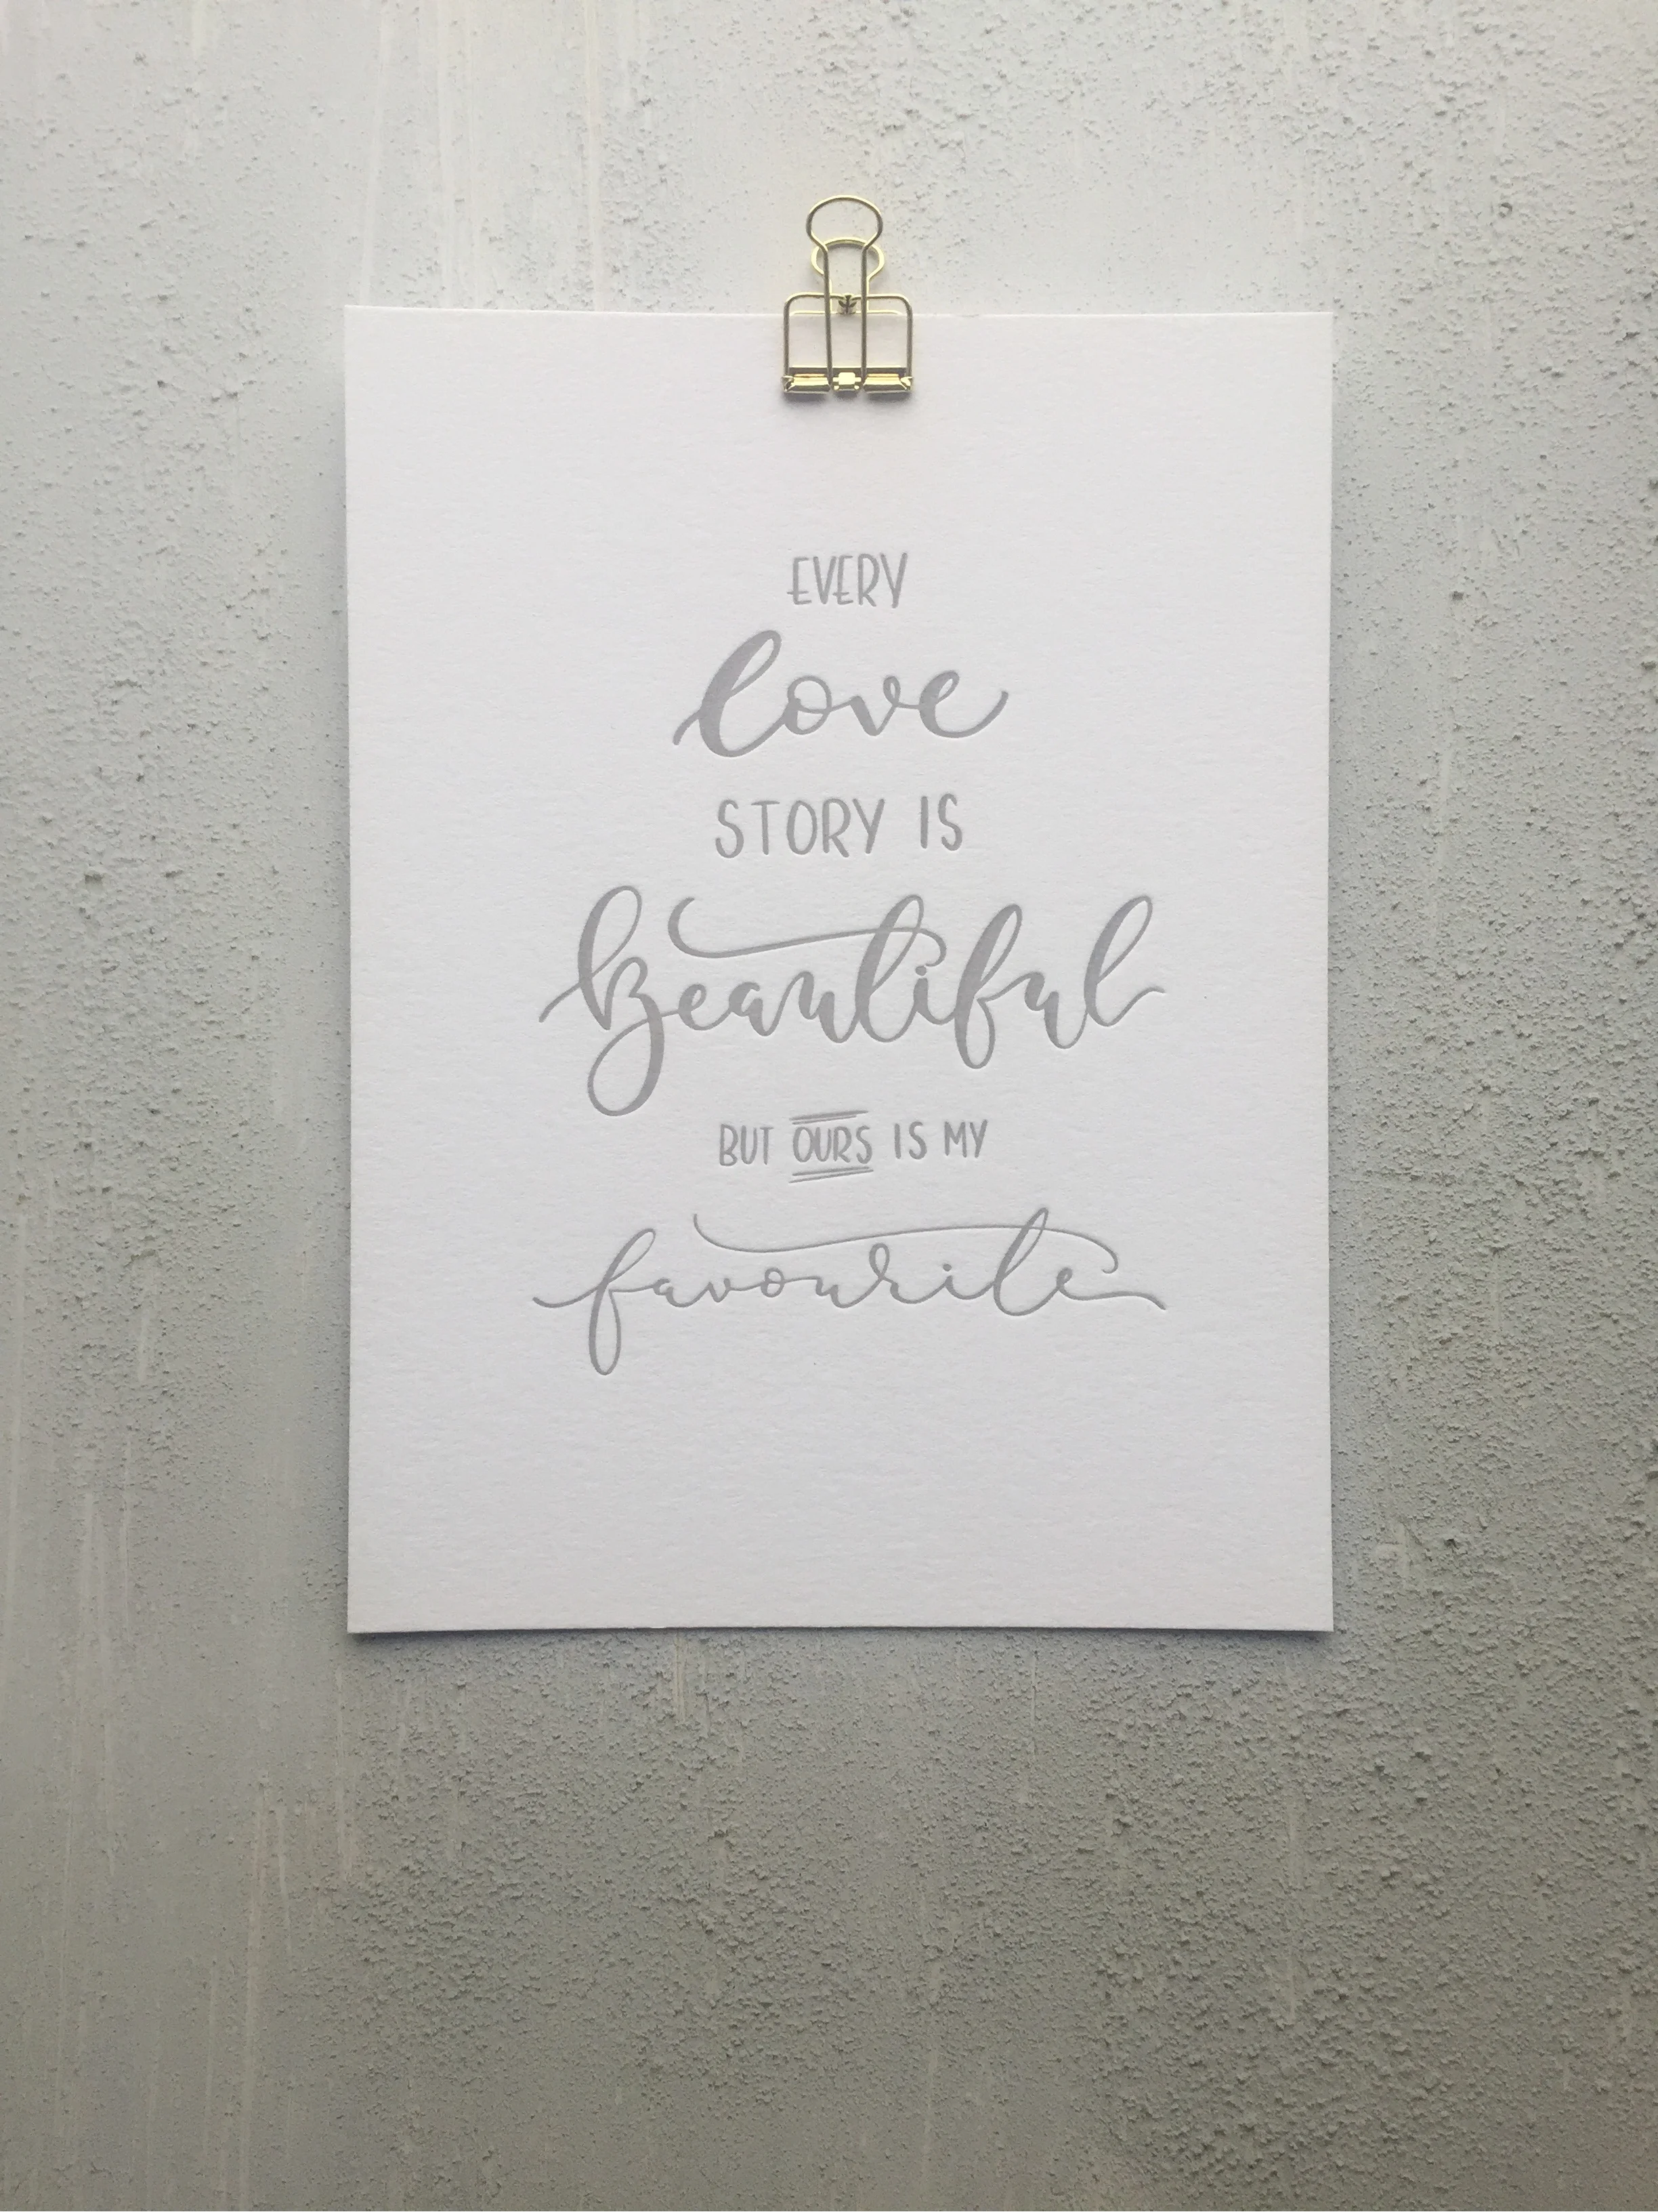 EVERY
love
STORY IS
Beautiful
BUT OURS IS MY
favourite